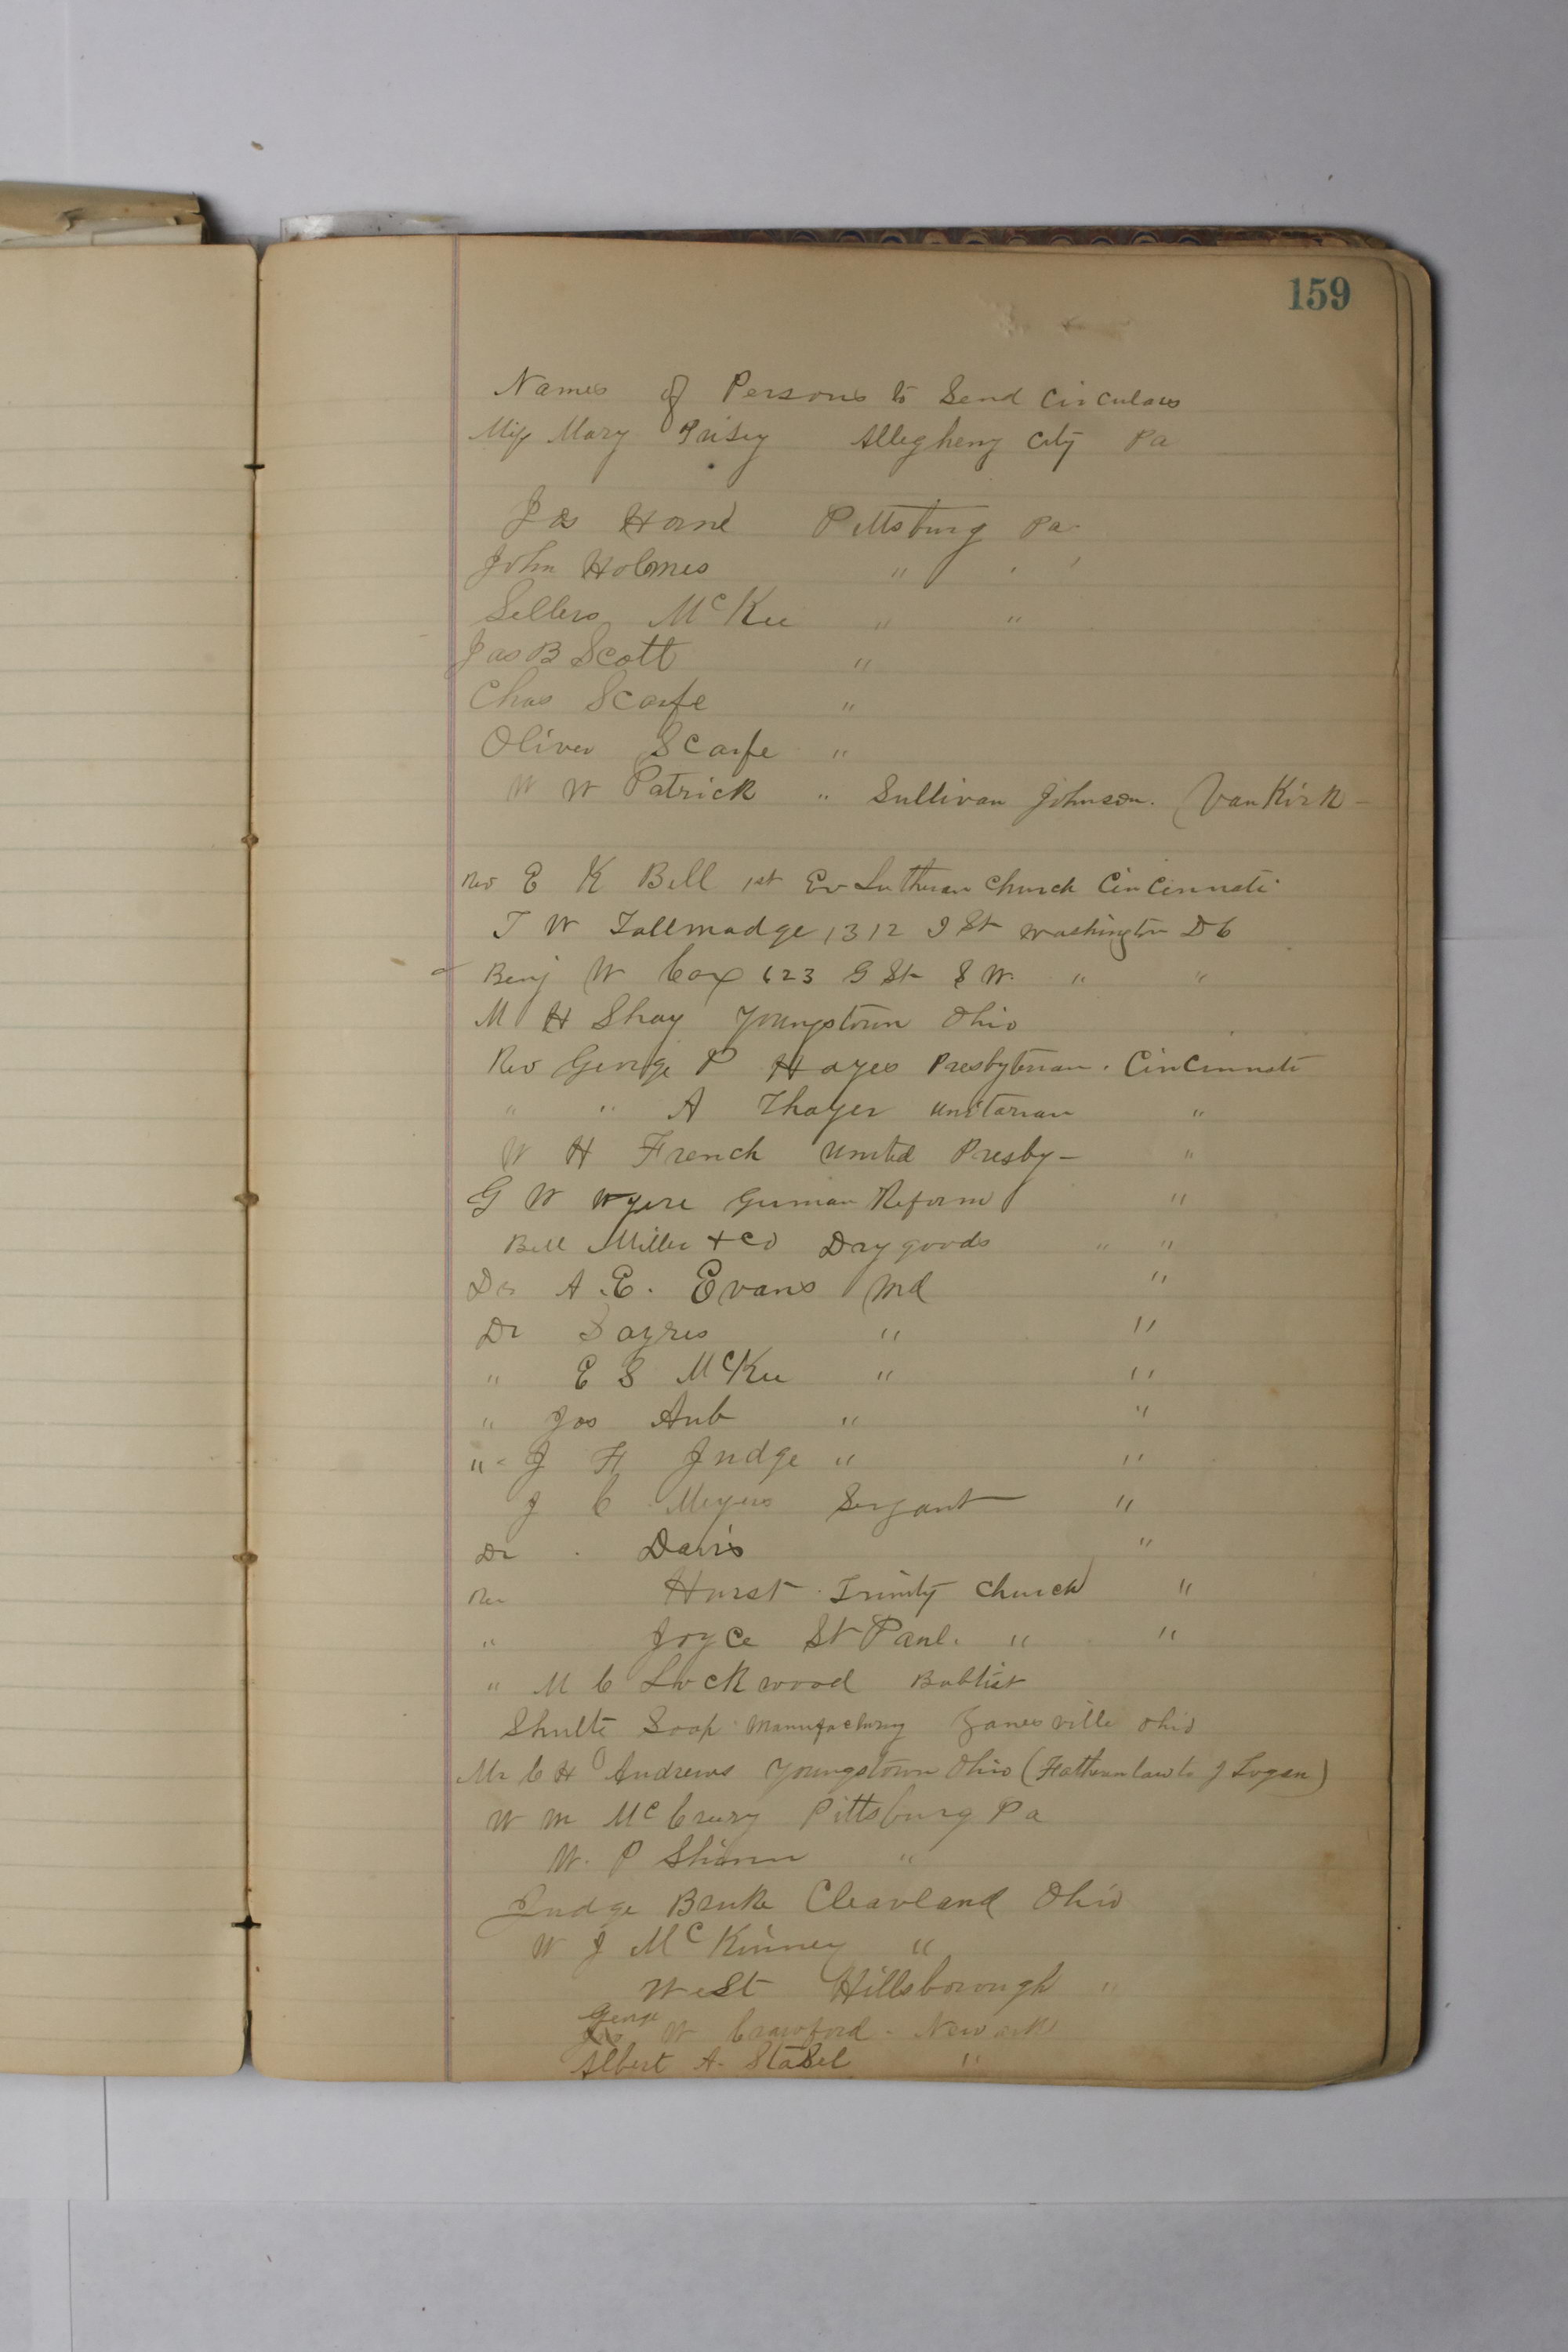 159
Names of Persons to Send Circulars
Miss Mary Allegheny City Pa
Jos Horne Pittsburg Pa
John Holmes " " "
Sellers McKee " "
Jas B Scott "
Chas Scaife "
Oliver Scaife "
W W Patrick " Sullivan Johnson. VanKirk -
Rev E K Bell 1st Ev Lutheran Church Cincinnati
T W Tallmadge 1312 St Washington D C
Benj W Cox 623 G St S W. " "
M H Shay Youngstown Ohio
Rev George P Hayes Presbyterian. Cincinnati
" " A Thayer Unitarian "
W H French United Presby- "
G W German Reform "
Bell Miller + Co Dry goods " "
Dr A. E. Evans Md "
Dr Sayres " "
" E S McKee " "
" Jos Aub " "
" J F Judge " "
J C Meyers "
Dr Davis "
Rev Hurst Trinity Church "
" Joyce St Paul. " "
" M C Lockwood Babtist
Shulte Soap Manufactury Zanesville Ohio
Mr C H Andrews Youngstown Ohio (Fatherinlaw to J Logan)
W m McCreery Pittsburg Pa
W. P Shinn "
Judge Cleavland Ohio
W J McKinney "
West Hillsborough "
George
W Crawford - Newark
Albert A. "